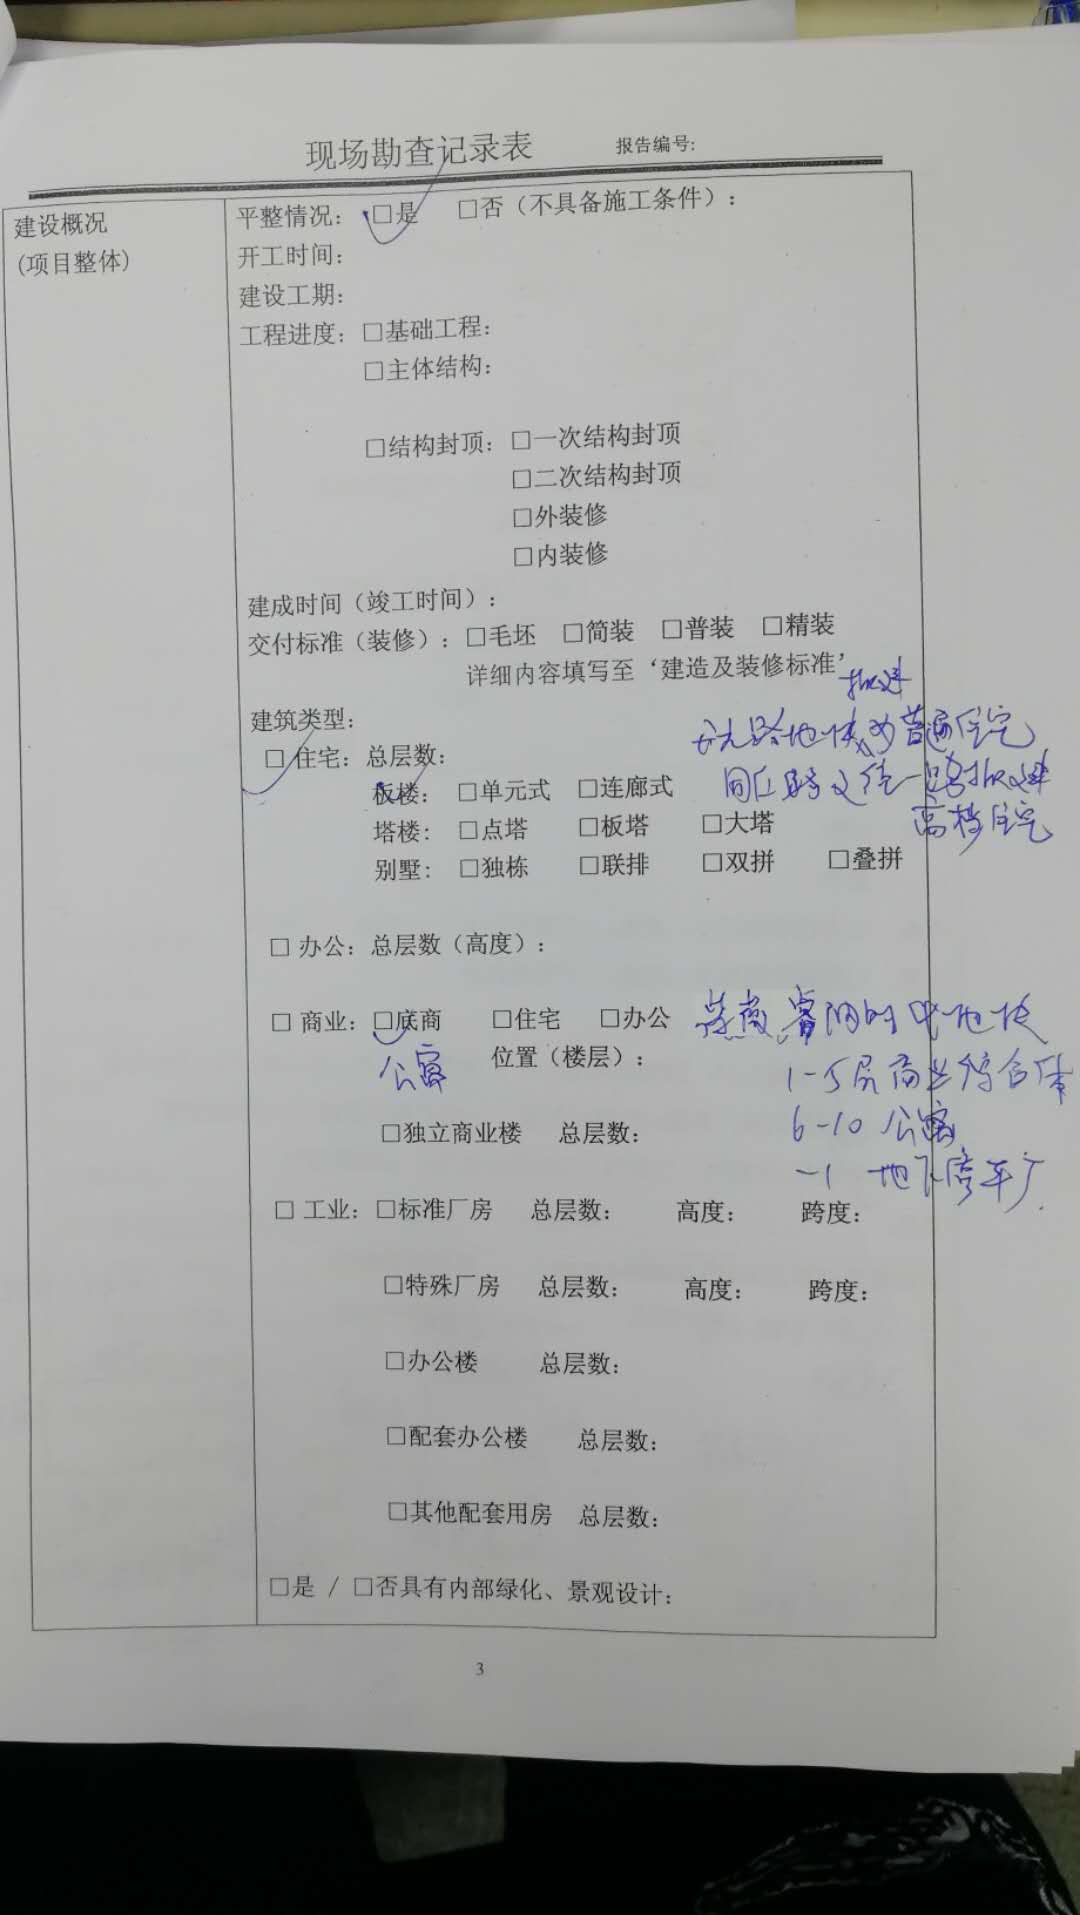 现场勘查记录表 报告编号:
建设概况
(项目整体)
平整情况: □是 □否(不具备施工条件):
开工时间:
建设工期:
工程进度: □基础工程:
□主体结构:
□结构封顶: □一次结构封顶
□二次结构封顶
□外装修
□内装修
建成时间(竣工时间):
交付标准(装修): □毛坯 □简装 □普装 □精装
详细内容填写至‘建造及装修标准’
拟建
建筑类型:
路地块为普通住宅
□ 住宅: 总层数:
板楼: □单元式 □连廊式
塔楼: □点塔 □板塔 □大塔
高档住宅
别墅: □独栋 □联排 □双拼 □叠拼
□ 办公: 总层数(高度):
□ 商业: □底商 □住宅 □办公
地块
公寓 位置(楼层):
1-5层商业综合体
6-10 公寓
□独立商业楼 总层数:
-1 地下停车
□ 工业: □标准厂房 总层数: 高度: 跨度:
□特殊厂房 总层数: 高度: 跨度:
□办公楼 总层数:
□配套办公楼 总层数:
□其他配套用房 总层数:
□是 / □否具有内部绿化、景观设计:
3